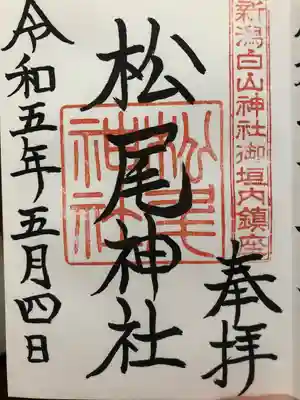 新潟白山神社御垣内鎮座
奉拝
松尾神社
松尾
神社
令和五年五月四日